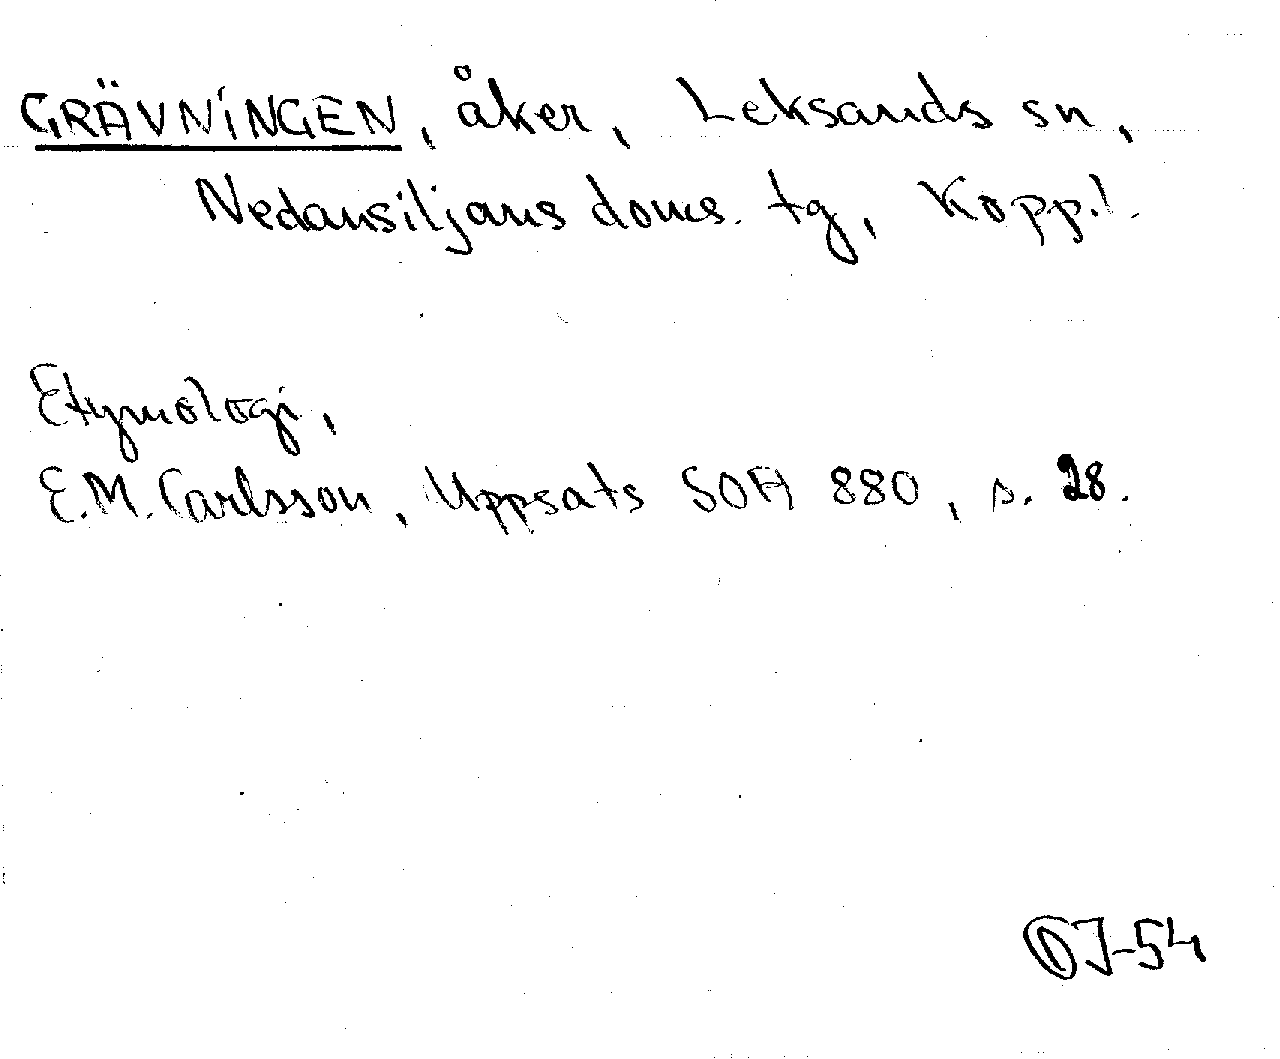 GRÄVNINGEN, åker, Leksands sn,
Nedansiljans doms. tg, Kopp.l.
Etymologi,
E.M. Carlsson, Uppsats SOFA 880, s. 28.